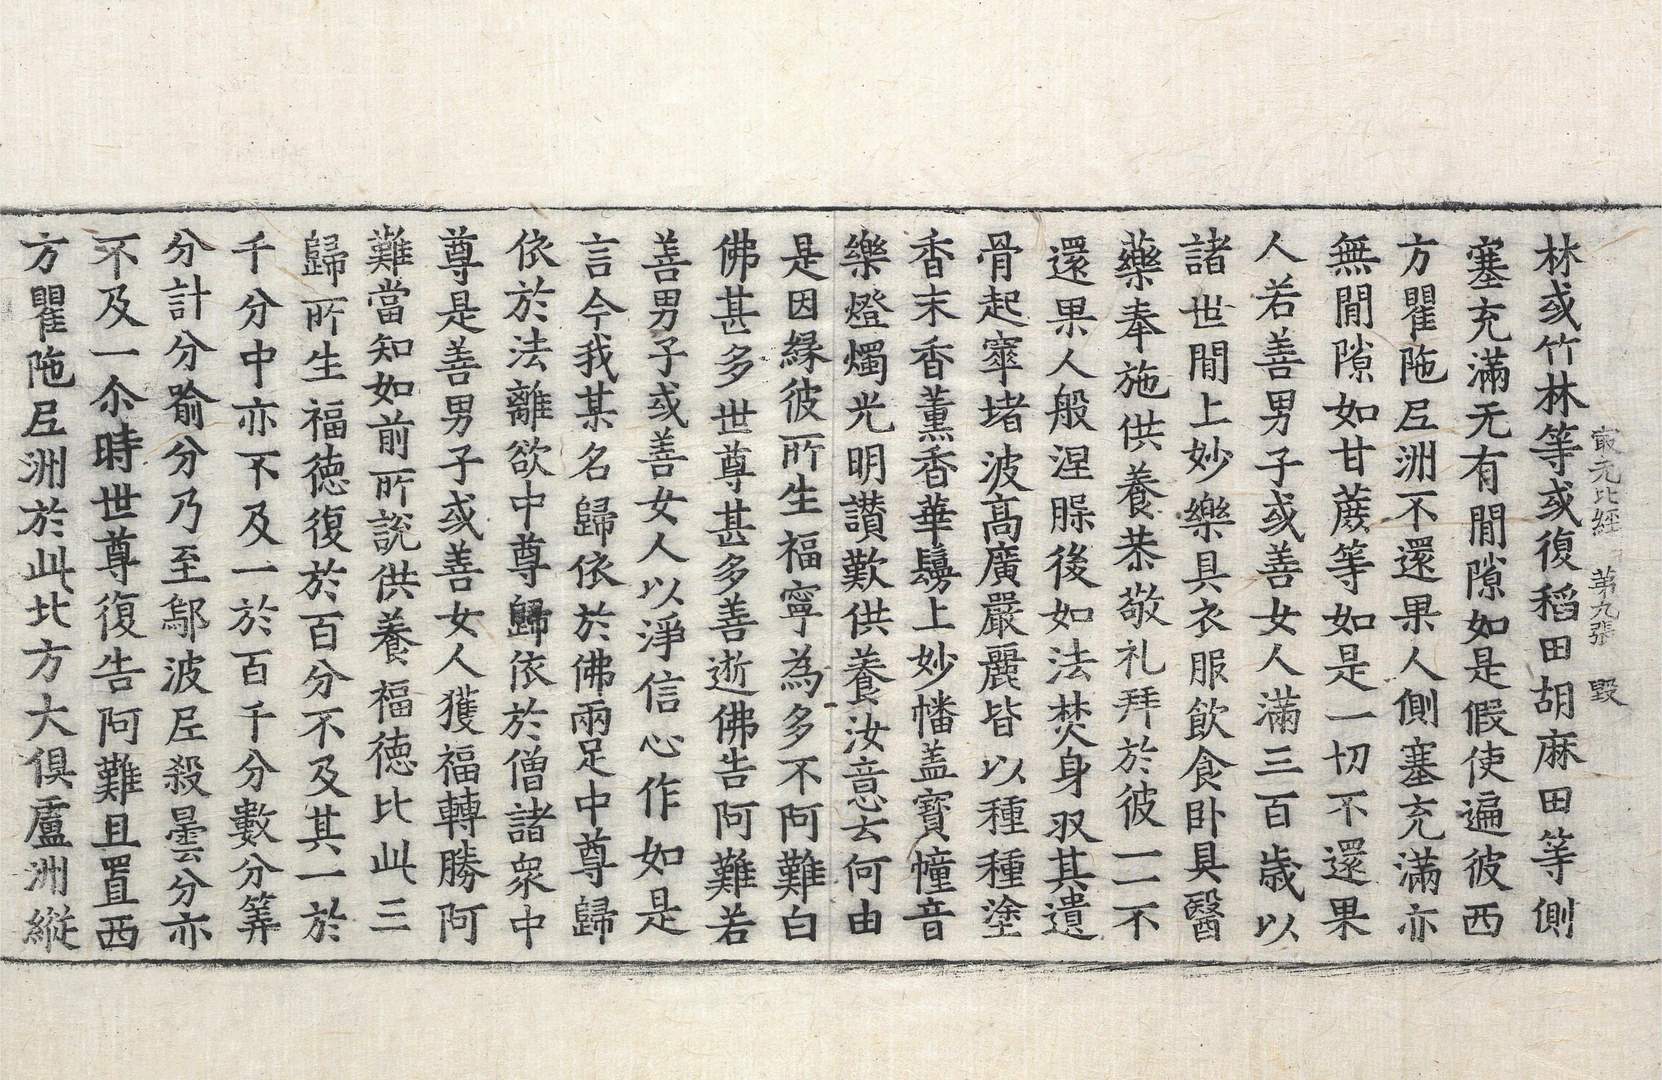 最无比經 第九張 毀
林或竹林等或復稻田胡麻田等側
塞充滿无有閒隙如是假使遍彼西
方瞿陁尼洲不還果人側塞充滿亦
無閒隙如甘蔗等如是一切不還果
人若善男子或善女人滿三百歲以
諸世閒上妙樂具衣服飲食卧具醫
藥奉施供養恭敬礼拜於彼一一不
還果人般涅槃後如法焚身収其遺
骨起窣堵波高廣嚴麗皆以種種塗
香末香薰香華鬘上妙幡盖寶幢音
樂燈燭光明讚歎供養汝意云何由
是因緣彼所生福寧為多不阿難白
佛甚多世尊甚多善逝佛告阿難若
善男子或善女人以淨信心作如是
言今我某名歸依於佛兩足中尊歸
依於法離欲中尊歸依於僧諸衆中
尊是善男子或善女人獲福轉勝阿
難當知如前所說供養福德比此三
歸所生福德復於百分不及其一於
千分中亦不及一於百千分數分筭
分計分喻分乃至鄔波尼殺曇分亦
不及一尒時世尊復告阿難且置西
方瞿陁尼洲於此北方大俱盧洲縱